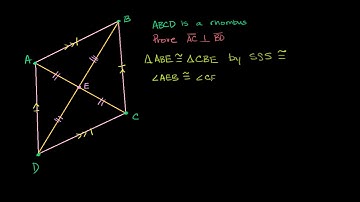 B
ABCD is a rhombus
Prove AC ⊥ BD
A
△ABE ≅ △CBE by SSS ≅
∠AEB ≅ ∠CE
E
C
D